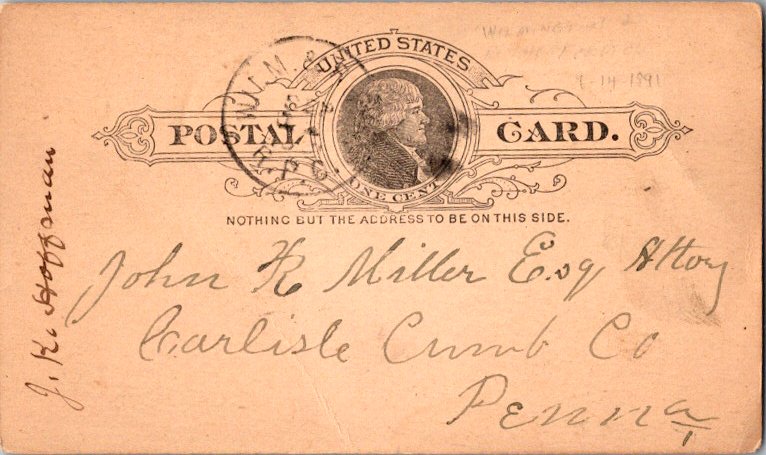 WILMINGTON
9-14-1891
UNITED STATES
POSTAL CARD.
ONE CENT
NOTHING BUT THE ADDRESS TO BE ON THIS SIDE.
J. K. Hoffman
John K Miller Esq Attory
Carlisle Cumb Co
Penna